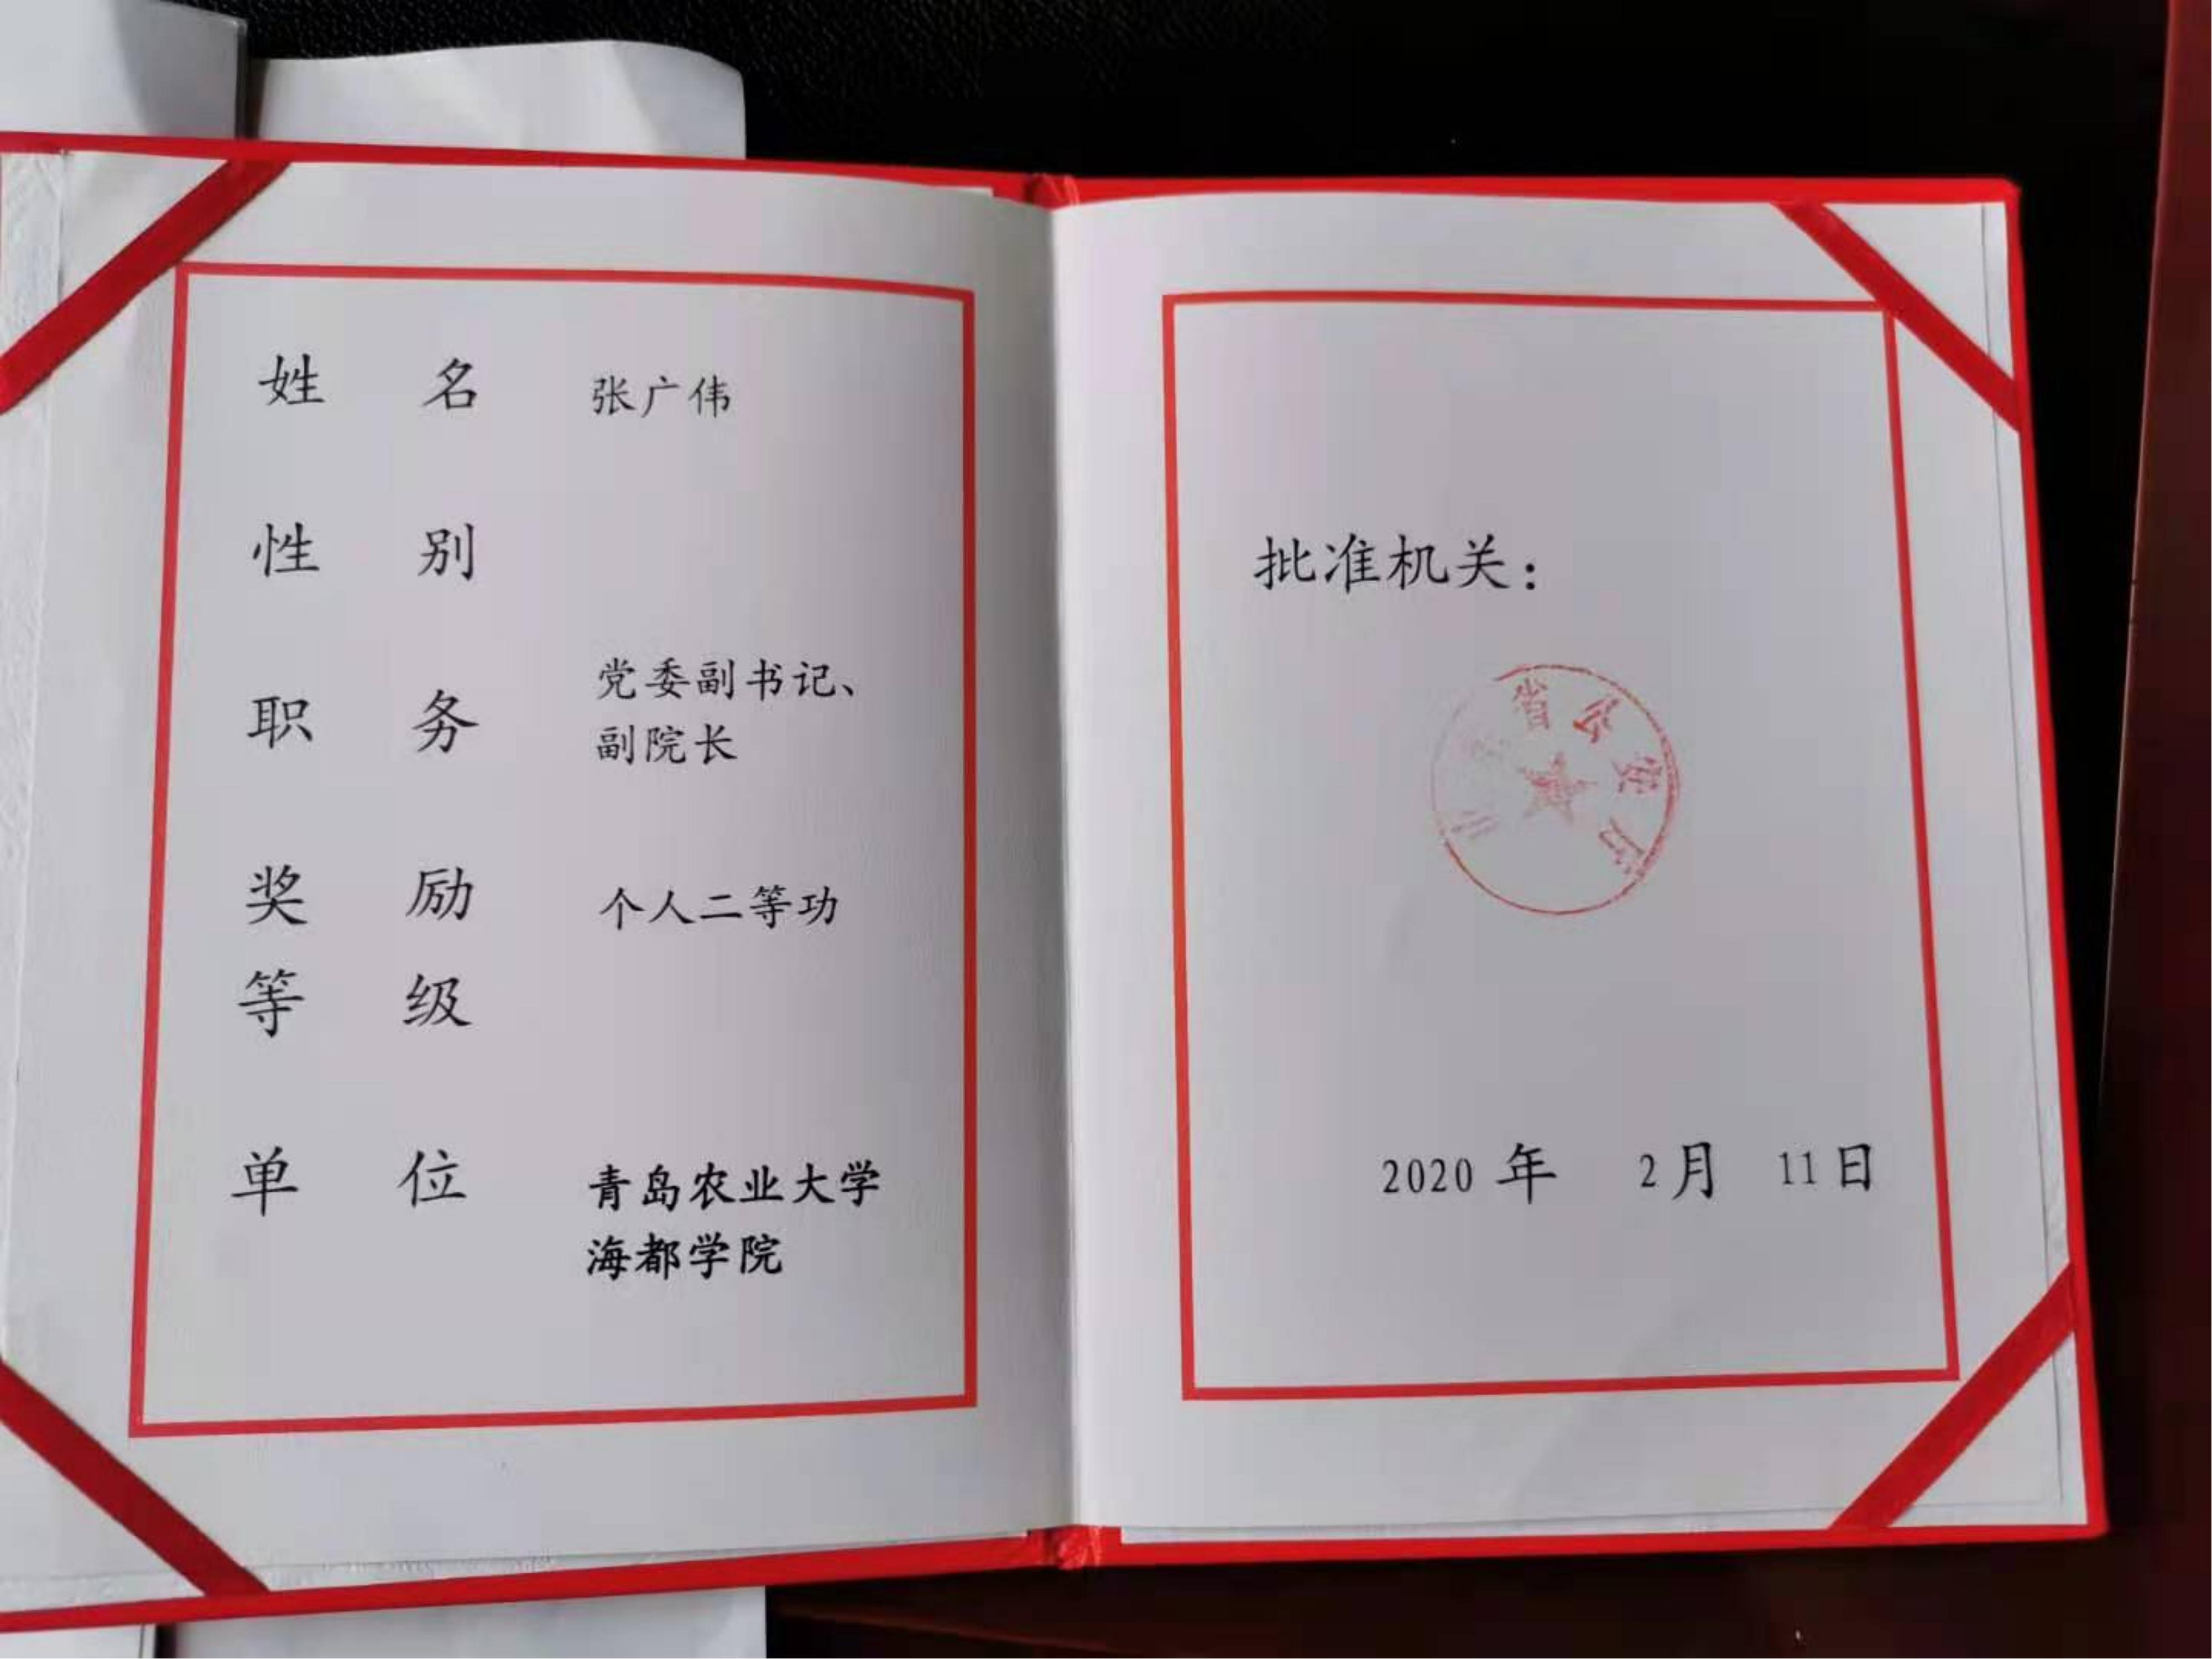 姓 名 张广伟
性 别
职 务 党委副书记、
副院长
奖 励 个人二等功
等 级
单 位 青岛农业大学
海都学院
批准机关：
省公安厅
2020 年 2月 11日